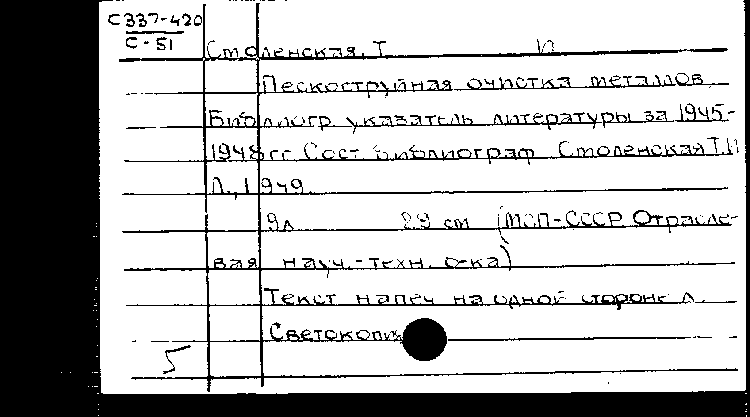 С337-420
С-51
Смоленская, Т П
Пескоструйная очистка металлов.
Библиогр указатель литературы за 1945-
1948гг Сост библиограф Смоленская Т.П
Л., 1949.
9л 29 см (МСП-СССР Отрасле-
вая науч.-техн. б-ка)
Текст напеч на одной стороне л.
Светокопия
5